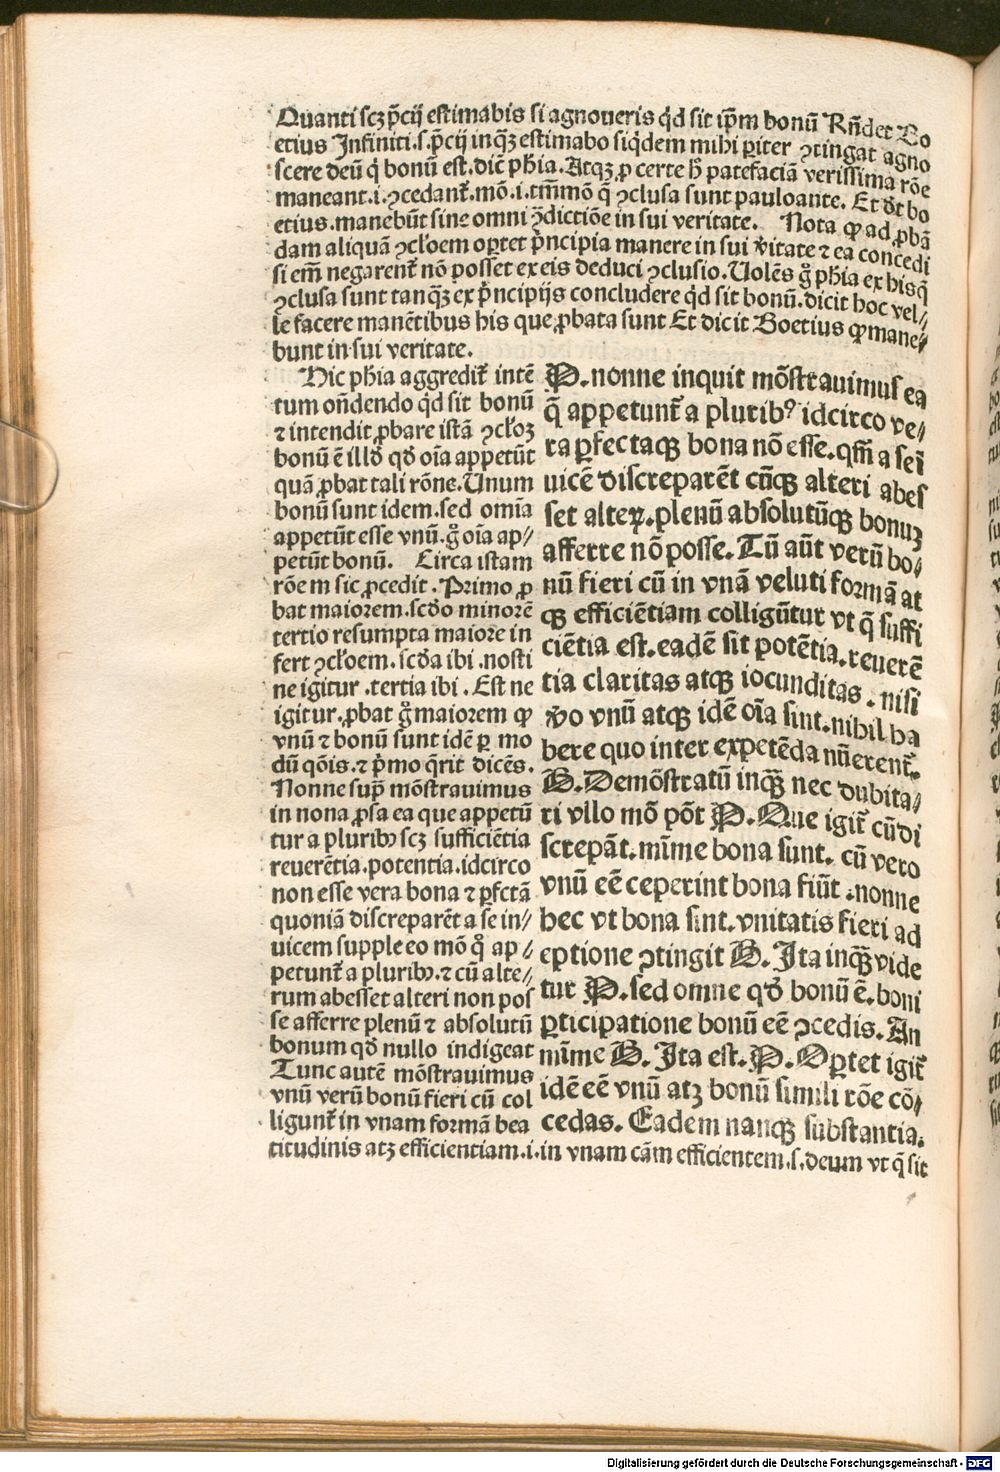 Quanti scꝫ p̃cij estimabis si agnoueris qͥd sit ip̃m bonũ Rñdet Bo
etius Infiniti.s.p̃cij inqͣꝫ estimabo siqͥdem mihi ꝑiter ꝯtingat agno
scere deũ qͥ bonũ est.dic̃ ph̃ia.Atqꝫ ꝓ certe h̃ patefaciã verissima rõe
maneant.i.ꝯcedant᷑.mõ.i.tm̃mõ q̃ ꝯclusa sunt pauloante. Et dc̃t bo
etius.manebũt sine omni ꝯ̃dictiõe in sui veritate. Nota ꝙ ad ꝓbã
dam aliquã ꝯcl̃oem oꝑtet p̃ncipia manere in sui ṽitate ⁊ ea concedi
si em̃ negarent᷑ nõ posset ex eis deduci ꝯclusio.Uolẽs gͦ ph̃ia ex his q̃
ꝯclusa sunt tanqͣꝫ ex p̃ncipijs concludere qͥd sit bonũ.dicit hoc vel⸗
le facere manẽtibus his que ꝓbata sunt Et dicit Boetius ꝙ mane⸗
bunt in sui veritate.
Hic ph̃ia aggredit᷑ intẽ
tum oñdendo qͥd sit bonũ
⁊ intendit ꝓbare istã ꝯcl̃oꝫ
bonũ ẽ illd̃ qd̃ oĩa appetũt
quã ꝓbat tali rõne.Unum
bonũ sunt idem.sed omĩa
appetũt esse vnũ.gͦ oĩa ap⸗
petũt bonũ. Circa istam
rõem sic ꝓcedit.Primo ꝓ
bat maiorem.scd̃o minorẽ
tertio resumpta maiore in
fert ꝯcl̃oem.scd̃a ibi.nosti
ne igitur.tertia ibi.Est ne
igitur.ꝓbat gͦ maiorem ꝙ
vnũ ⁊ bonũ sunt idẽ ꝑ mo
dũ qõis.⁊ p̃mo q̃rit dicẽs.
Nonne supͣ mõstrauimus
in nona ꝓsa ea que appetũ
tur a pluribꝰ scꝫ sufficiẽtia
reuerẽtia.potentia.idcirco
non esse vera bona ⁊ ꝑfctã
quoniã discreparẽt a se in⸗
uicem supple eo mõ qͦ ap⸗
petunt᷑ a pluribꝰ.⁊ cũ alte⸗
rum abesset alteri non pos
se afferre plenũ ⁊ absolutũ
bonum qd̃ nullo indigeat
Tunc autẽ mõstrauimus
vnũ verũ bonũ fieri cũ col
ligunt᷑ in vnam formã bea
titudinis atꝫ efficientiam.i.in vnam cãm efficientem.s.deum vt q̃ sit
P.nonne inquit mõstrauimus ea
q̃ appetunt᷑ a pluribꝰ idcirco ve⸗
ra ꝑfectaqꝫ bona nõ esse.qm̃ a seĩ
uicẽ discreparẽt cũqꝫ alteri abes
set alteꝝ.plenũ absolutũqꝫ bonuꝫ
afferre nõ posse.Tũ aũt verũ bo⸗
nũ fieri cũ in vnã veluti formã at
qꝫ efficiẽtiam colligũtur vt q̃ suffi
ciẽtia est.eadẽ sit potẽtia.reuerẽ
tia claritas atqꝫ iocunditas.nisi
ṽo vnũ atqꝫ idẽ oĩa sint.nihil ha
bere quo inter expetẽda nũerent᷑.
B.Demõstratũ inqͣꝫ nec dubita⸗
ri vllo mõ põt P.Que igit᷑ cũ di
screpãt.mĩme bona sunt. cũ vero
vnũ eẽ ceperint bona fiũt.nonne
hec vt bona sint.vnitatis fieri ad
eptione ꝯtingit B.Ita inqͣꝫ vide
tur P.sed omne qd̃ bonũ ẽ.boni
ꝑticipatione bonũ eẽ ꝯcedis.An
mĩme B. Ita est.P.Oꝑtet igit᷑
idẽ eẽ vnũ atꝫ bonũ simili rõe cõ⸗
cedas. Eadem nanqꝫ substantia.
Digitalisierung gefördert durch die Deutsche Forschungsgemeinschaft - DFG